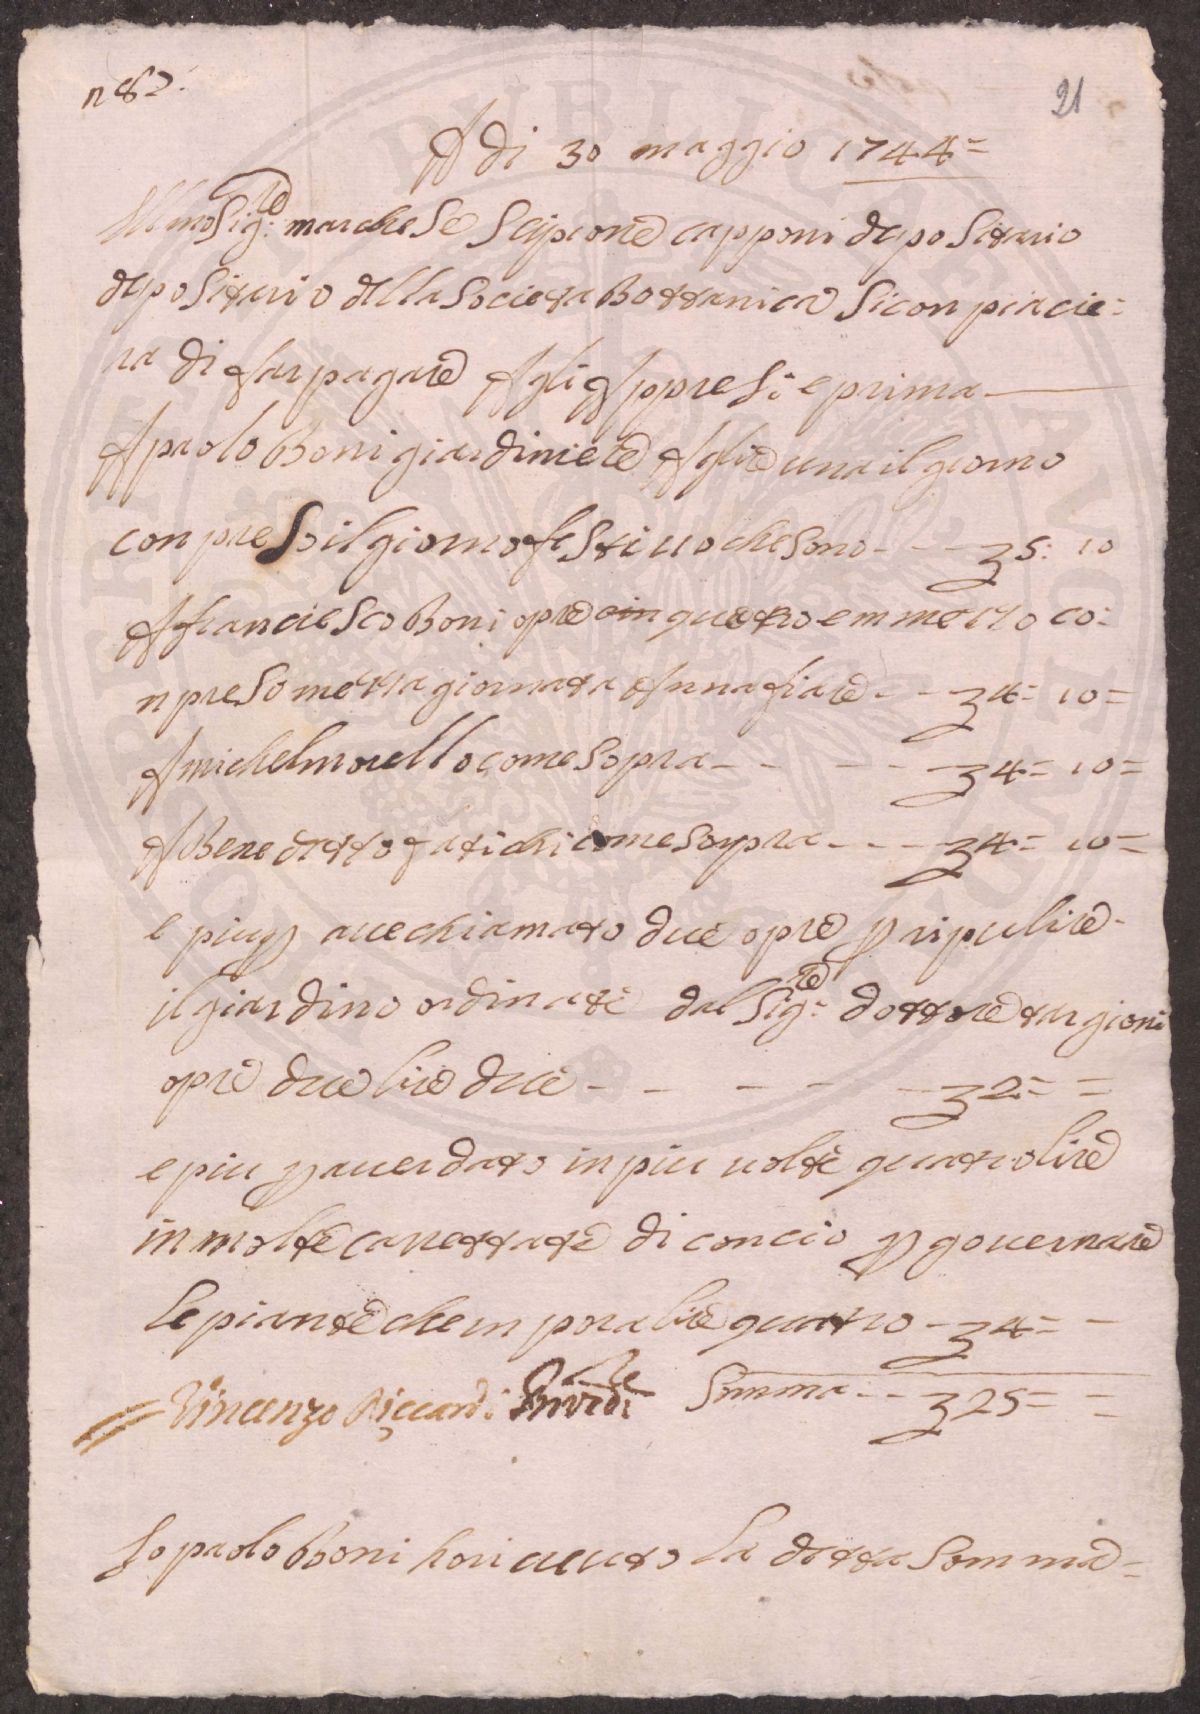 n 82.
21
A di 30 maggio 1744=
Illmo Sig:re marchese Scipione capponi depositario
depositario della Societa Bottanica Si conpiacie=
ra di far pagare Agli Appresi e prima
A paolo Boni giardiniere A lire una il giorno
con preso il giorno festiuo che sono - - £ 5: 10
A franciesco Boni opre quatro e mmezzo co=
npreso mezza giornata A nnafiare - - £ 4= 10=
A michel morello come sopra - - - - £ 4= 10=
A Benedetto fatichi come sopra - - - £ 4= 10=
e piu p auechiamato due opre p ripulire
il giardino ordinate dal Sig:re dottore targioni
opre due lire due - - - - - £ 2= =
e piu p auerdato in piu uolte quatro lire
in molte carettate di concio p gouernare
le piante che in pora lire quatro - £ 4= -
Vincenzo Riccardi Somma - - £ 25= =
Io paolo Boni ho riceuuto La detta Somma=